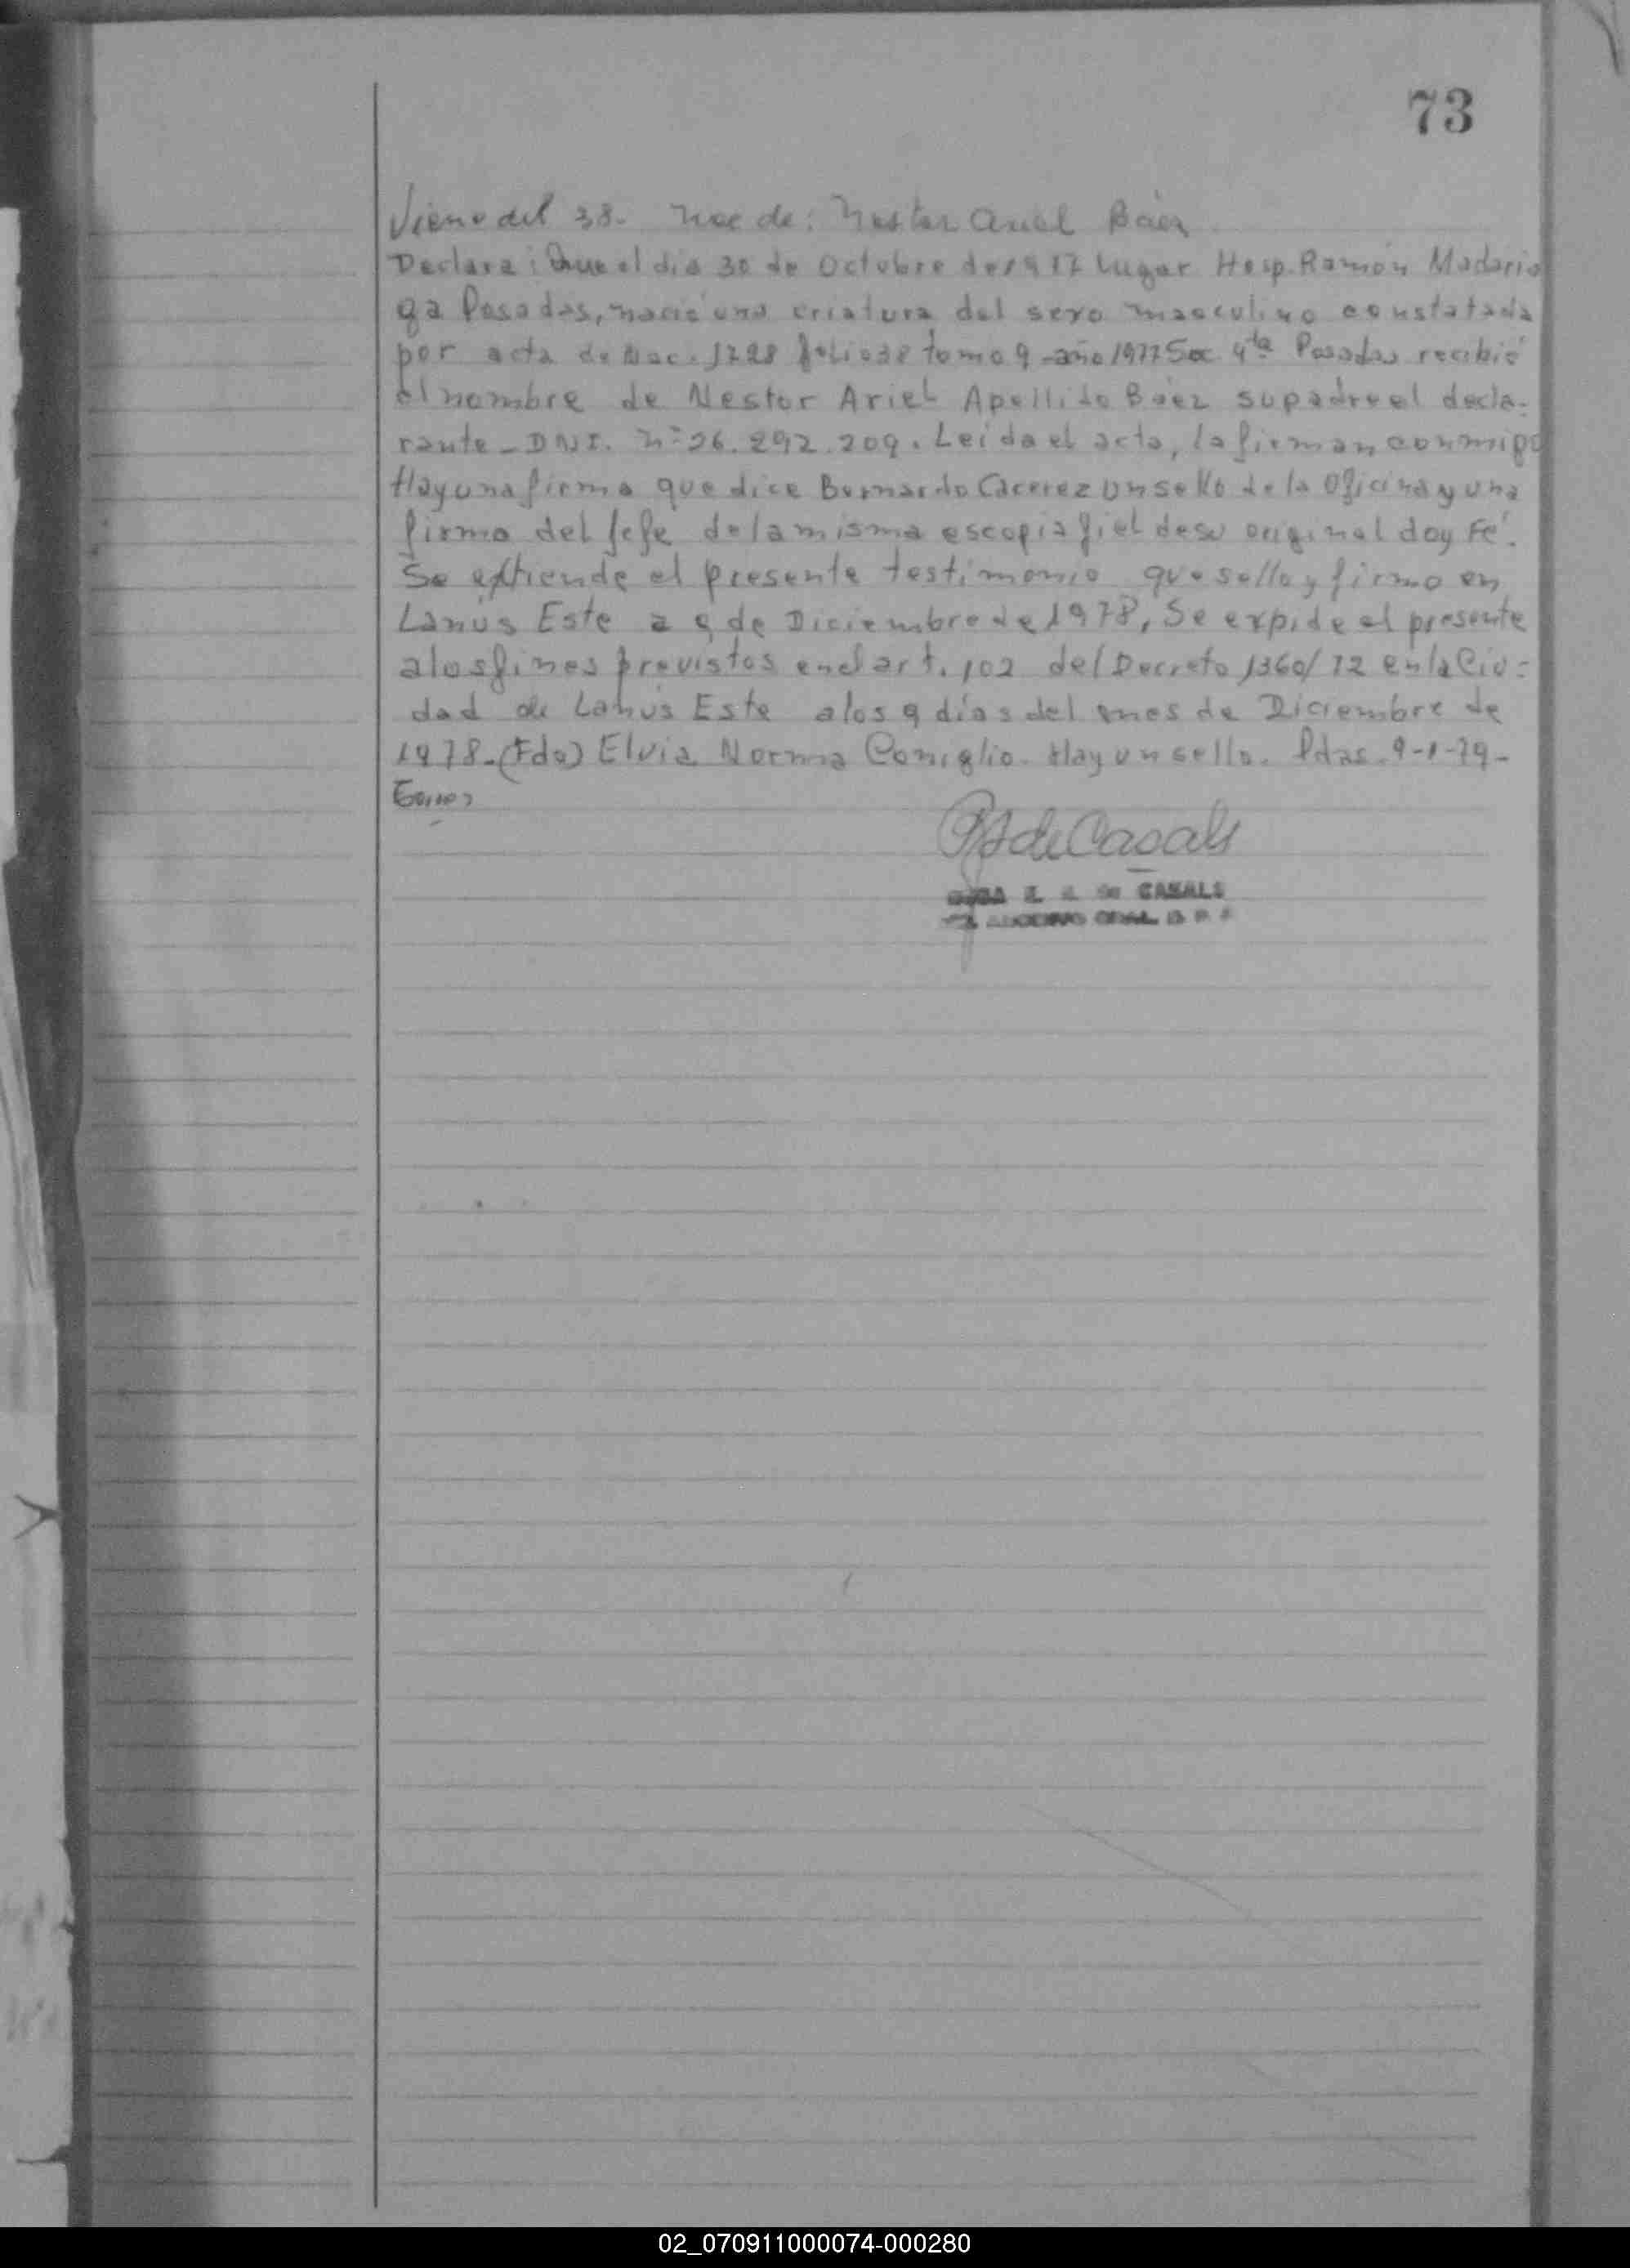 73
Viene del 38. Nac de: Nestor Ariel Báez
Declara: Que el día 30 de Octubre de 1977 Lugar Hosp. Ramón Madaria
ga Posadas, nació una criatura del sexo masculino constatada
por acta de Nac. 1728 folio 38 tomo 9 - año 1977 Sec. 4ta Posadas recibió
el nombre de Nestor Ariel Apellido Báez su padre el decla-
rante - DNI. Nº 26.292.209. Leída el acta, la firman conmigo
Hay una firma que dice Bernardo Cacerez un sello de la Oficina y una
firma del Jefe de la misma es copia fiel de su original doy Fé.
Se extiende el presente testimonio que sello y firmo en
Lanús Este a 9 de Diciembre de 1978, Se expide el presente
a los fines previstos en el art. 102 del Decreto 1360/72 en la Ciu-
dad de Lanús Este a los 9 días del mes de Diciembre de
1978 - (Fdo) Elvia Norma Coniglio. Hay un sello. Pdas. 9-1-79 -
de Casals
de CASALS
02_070911000074-000280